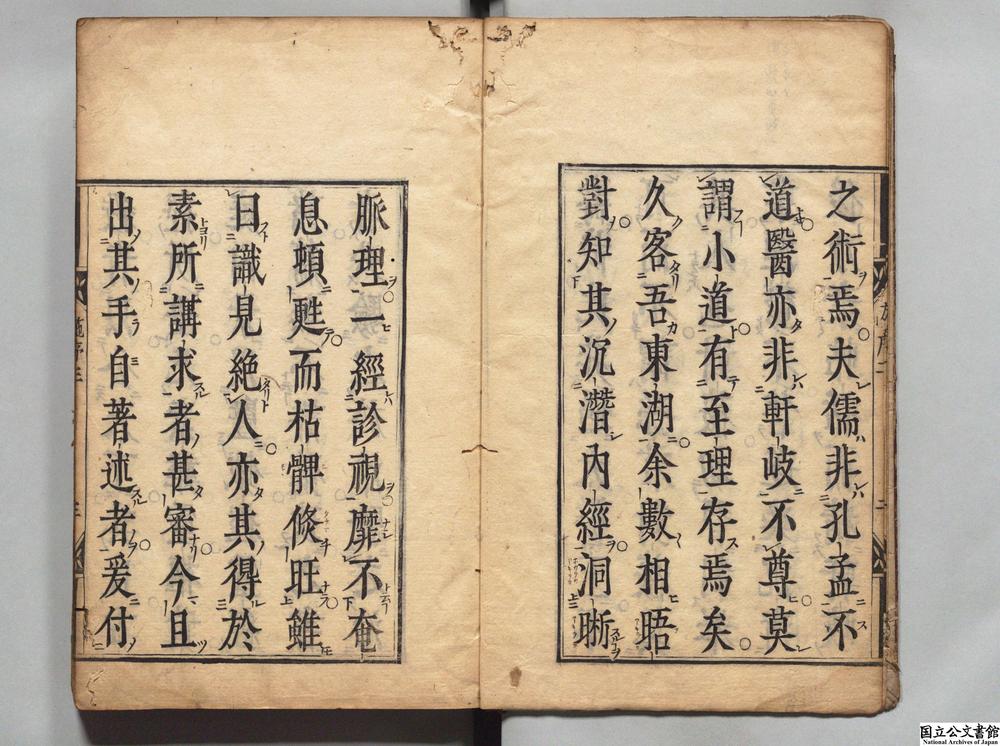 之術焉夫儒非孔孟不
道醫亦非軒岐不尊莫
謂小道有至理存焉矣
久客吾東湖余數相晤
對知其沉潛內經洞晰
脈理一經診視靡不奄
息頓甦而枯髀倏旺雖
曰識見絶人亦其得於
素所講求者甚審今且
出其手自著述者爰付
國立公文書館
National Archives of Japan